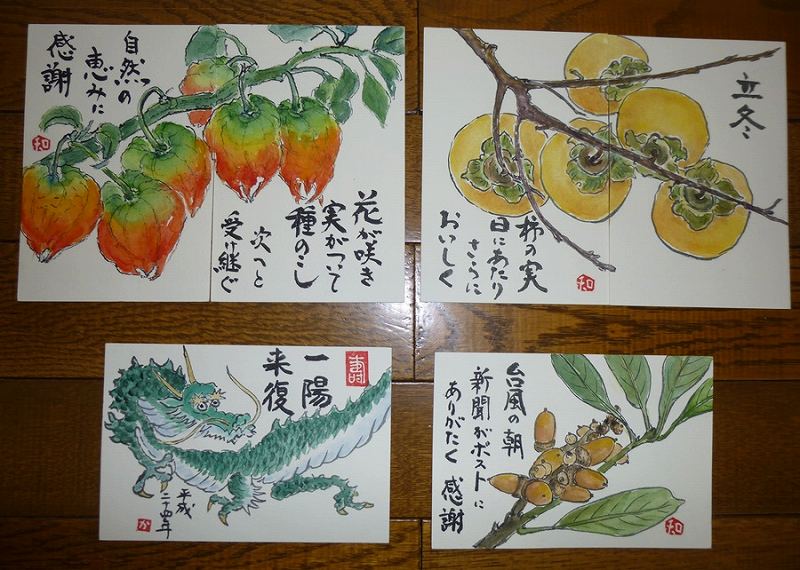 自然の
恵みに
感謝
和
花が咲き
実がついて
種のこし
次へと
受け継ぐ
立冬
柿の実
日にあたり
さらに
おいしく
和
壽
一陽
来復
平成
二十四年
か
台風の朝
新聞がポストに
ありがたく 感謝
和